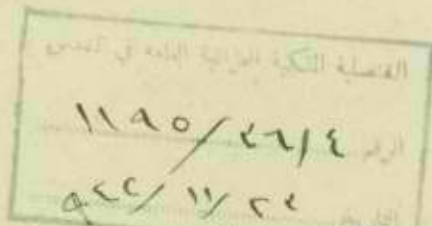 القنصلية الملكية العراقية العامة في القدس
الرقم ١١٨٥/٣٦/٤
التاريخ ٩٤٢/١١/٢٣